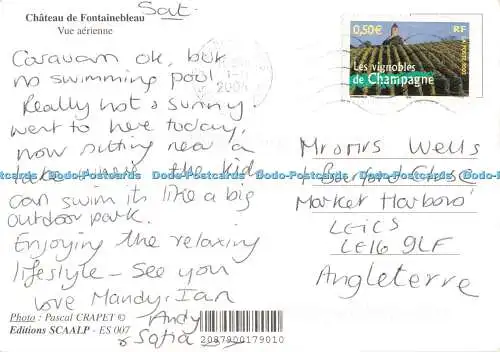 Château de Fontainebleau
Vue aérienne
Sat.
Caravan ok, but
no swimming pool
Really hot & sunny
went to here today,
now sitting near a
lake where the kids
can swim its like a big
outdoor park.
Enjoying the relaxing
lifestyle - See you
love Mandy, Ian
Andy
& Sofia
Photo : Pascal CRAPET ©
Editions SCAALP - ES 007
2087900179010
0,50€
RF
LA POSTE 2003
Les vignobles
de Champagne
2004
Mr & Mrs Wells
1 Burford Close
Market Harboro'
LEICS
LE16 9LF
Angleterre
Dodo-Postcards Dodo-Postcards Dodo-Postcards Dodo-Postcards Dodo-Postcards